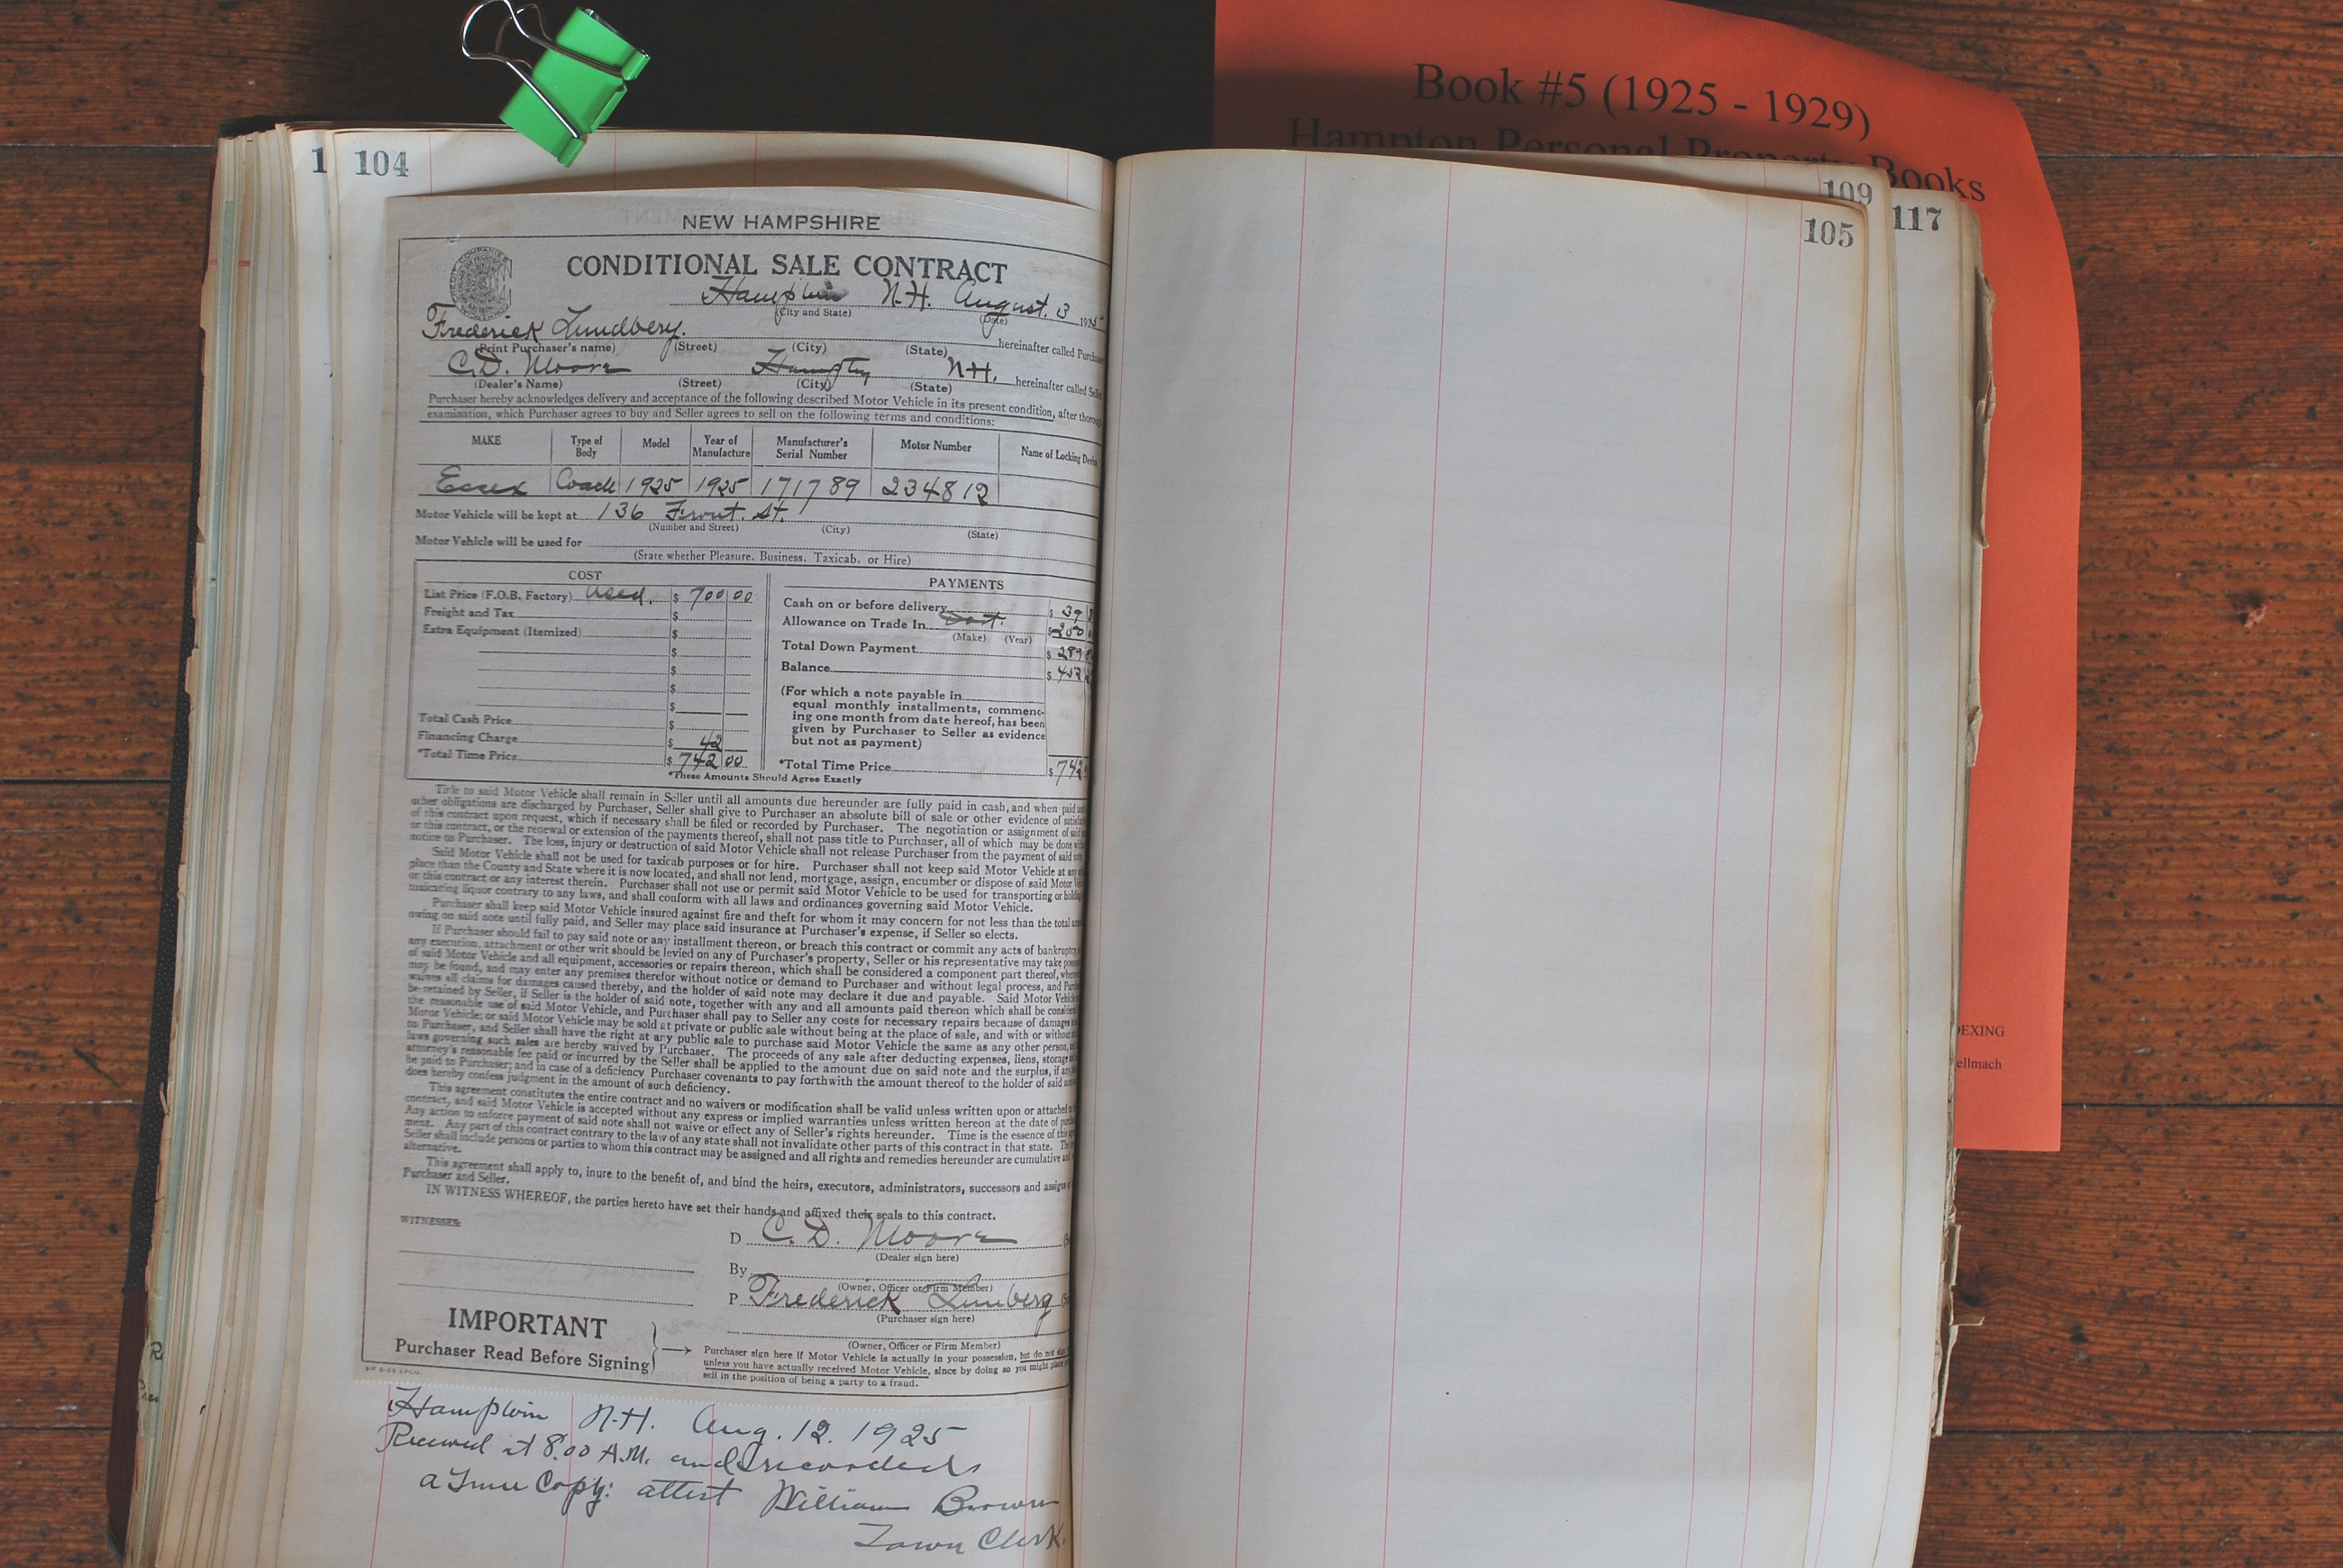 Book #5 (1925 - 1929)
Hampton Personal Property Books
1 104
109
117
105
NEW HAMPSHIRE
CONDITIONAL SALE CONTRACT
Hampton N.H. August. 3 1925
(City and State) (Date)
Frederick Lundberg. hereinafter called Purchas
(Print Purchaser's name) (Street) (City) (State)
C.D. Moore Hampton N.H. hereinafter called Sell
(Dealer's Name) (Street) (City) (State)
Purchaser hereby acknowledges delivery and acceptance of the following described Motor Vehicle in its present condition, after thoroug
examination, which Purchaser agrees to buy and Seller agrees to sell on the following terms and conditions:
MAKE Type of Body Model Year of Manufacture Manufacturer's Serial Number Motor Number Name of Locking Devic
Essex Coach 1925 1925 171789 234812
Motor Vehicle will be kept at 136 Front. St.
(Number and Street) (City) (State)
Motor Vehicle will be used for
(State whether Pleasure, Business, Taxicab, or Hire)
COST
List Price (F.O.B. Factory) Used. $ 700 00
Freight and Tax $
Extra Equipment (Itemized) $
$
$
$
$
Total Cash Price $
Financing Charge $ 42
*Total Time Price $ 742 00
PAYMENTS
Cash on or before delivery $ 39
Allowance on Trade In $ 250
(Make) (Year)
Total Down Payment $ 289
Balance $ 452
(For which a note payable in
equal monthly installments, commenc-
ing one month from date hereof, has been
given by Purchaser to Seller as evidence
but not as payment)
*Total Time Price $ 742
*These Amounts Should Agree Exactly
Title to said Motor Vehicle shall remain in Seller until all amounts due hereunder are fully paid in cash, and when paid
other obligations are discharged by Purchaser, Seller shall give to Purchaser an absolute bill of sale or other evidence of satisf
of this contract upon request, which if necessary shall be filed or recorded by Purchaser. The negotiation or assignment of sai
or this contract, or the renewal or extension of the payments thereof, shall not pass title to Purchaser, all of which may be done
notice to Purchaser. The loss, injury or destruction of said Motor Vehicle shall not release Purchaser from the payment of said
Said Motor Vehicle shall not be used for taxicab purposes or for hire. Purchaser shall not keep said Motor Vehicle at any
place than the County and State where it is now located, and shall not lend, mortgage, assign, encumber or dispose of said Motor
or this contract or any interest therein. Purchaser shall not use or permit said Motor Vehicle to be used for transporting or holdi
toxicating liquor contrary to any laws, and shall conform with all laws and ordinances governing said Motor Vehicle.
Purchaser shall keep said Motor Vehicle insured against fire and theft for whom it may concern for not less than the total
owing on said note until fully paid, and Seller may place said insurance at Purchaser's expense, if Seller so elects.
If Purchaser should fail to pay said note or any installment thereon, or breach this contract or commit any acts of bankruptcy
any execution, attachment or other writ should be levied on any of Purchaser's property, Seller or his representative may take
of said Motor Vehicle and all equipment, accessories or repairs thereon, which shall be considered a component part thereof,
may be found, and may enter any premises therefor without notice or demand to Purchaser and without legal process, and
waives all claims for damages caused thereby, and the holder of said note may declare it due and payable. Said Motor Vehic
be retained by Seller, if Seller is the holder of said note, together with any and all amounts paid thereon which shall be
the reasonable use of said Motor Vehicle, and Purchaser shall pay to Seller any costs for necessary repairs because of damages
Motor Vehicle; or said Motor Vehicle may be sold at private or public sale without being at the place of sale, and with or without
to Purchaser, and Seller shall have the right at any public sale to purchase said Motor Vehicle the same as any other person,
laws governing such sales are hereby waived by Purchaser. The proceeds of any sale after deducting expenses, liens, storage
attorney's reasonable fee paid or incurred by the Seller shall be applied to the amount due on said note and the surplus, if any
be paid to Purchaser; and in case of a deficiency Purchaser covenants to pay forthwith the amount thereof to the holder of said
does hereby confess judgment in the amount of such deficiency.
This agreement constitutes the entire contract and no waivers or modification shall be valid unless written upon or attached
contract, and said Motor Vehicle is accepted without any express or implied warranties unless written hereon at the date of
Any action to enforce payment of said note shall not waive or effect any of Seller's rights hereunder. Time is the essence of this
ment. Any part of this contract contrary to the law of any state shall not invalidate other parts of this contract in that state.
Seller shall include persons or parties to whom this contract may be assigned and all rights and remedies hereunder are cumulative
alternative.
This agreement shall apply to, inure to the benefit of, and bind the heirs, executors, administrators, successors and assigns
Purchaser and Seller.
IN WITNESS WHEREOF, the parties hereto have set their hands and affixed their seals to this contract.
WITNESSES:
D C. D. Moore
(Dealer sign here)
By
(Owner, Officer or Firm Member)
P Frederick Lunberg
(Purchaser sign here)
(Owner, Officer or Firm Member)
IMPORTANT
Purchaser Read Before Signing
Purchaser sign here if Motor Vehicle is actually in your possession, but do not
unless you have actually received Motor Vehicle, since by doing so you might
self in the position of being a party to a fraud.
Hampton N.H. Aug. 12. 1925
Received at 8.00 A.M. and recorded
a True Copy: attest William Brown
Town Clerk.
EXING
ellmach